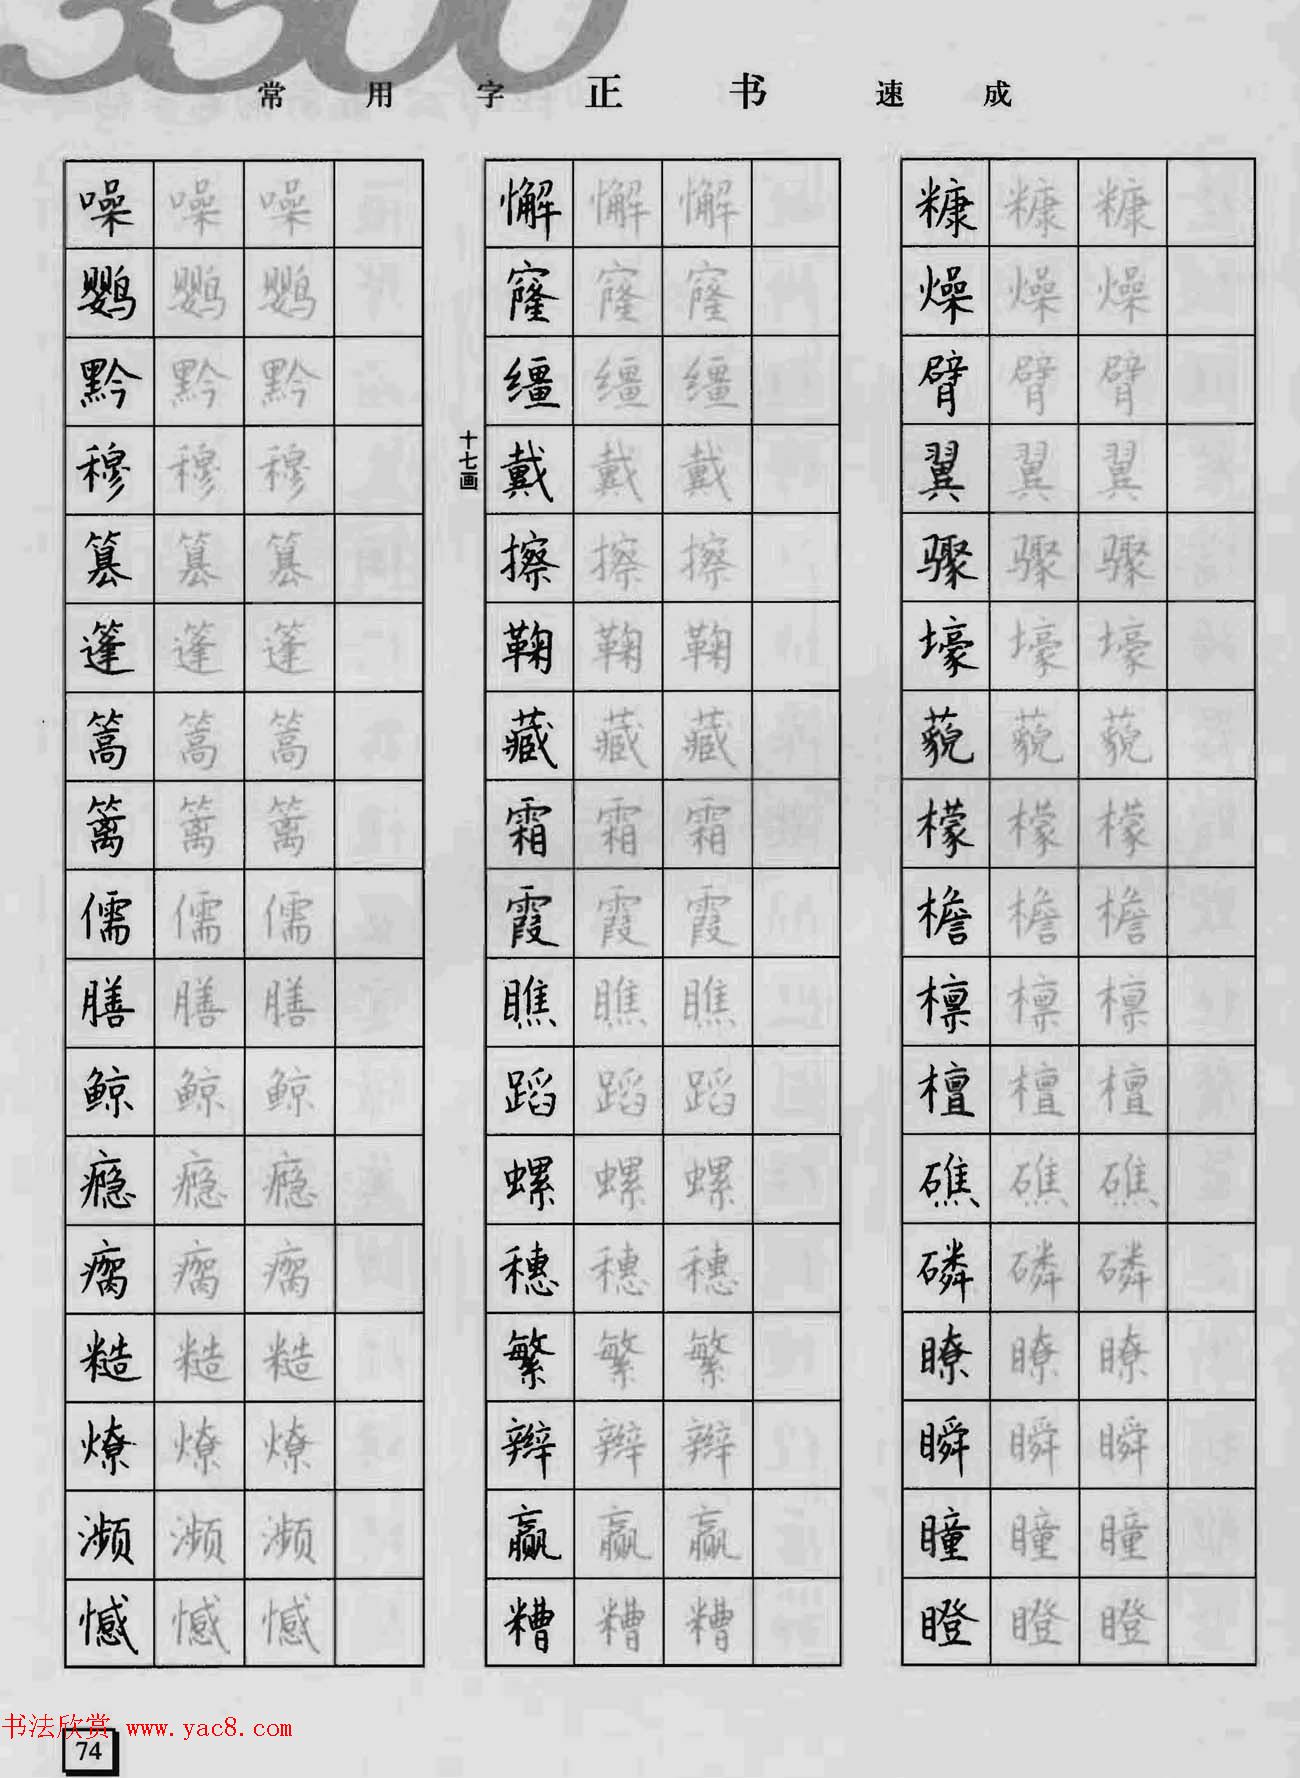 3500
常用字正书速成
噪 噪 噪
鹦 鹦 鹦
黔 黔 黔
穆 穆 穆
篡 篡 篡
篷 篷 篷
篙 篙 篙
篱 篱 篱
儒 儒 儒
膳 膳 膳
鲸 鲸 鲸
瘾 瘾 瘾
瘸 瘸 瘸
糙 糙 糙
燎 燎 燎
濒 濒 濒
憾 憾 憾
懈 懈 懈
窿 窿 窿
缰 缰 缰
十七画
戴 戴 戴
擦 擦 擦
鞠 鞠 鞠
藏 藏 藏
霜 霜 霜
霞 霞 霞
瞧 瞧 瞧
蹈 蹈 蹈
螺 螺 螺
穗 穗 穗
繁 繁 繁
辫 辫 辫
赢 赢 赢
糟 糟 糟
糠 糠 糠
燥 燥 燥
臂 臂 臂
翼 翼 翼
骤 骤 骤
壕 壕 壕
藐 藐 藐
檬 檬 檬
檐 檐 檐
檩 檩 檩
檀 檀 檀
礁 礁 礁
磷 磷 磷
瞭 瞭 瞭
瞬 瞬 瞬
瞳 瞳 瞳
瞪 瞪 瞪
书法欣赏 www.yac8.com
74